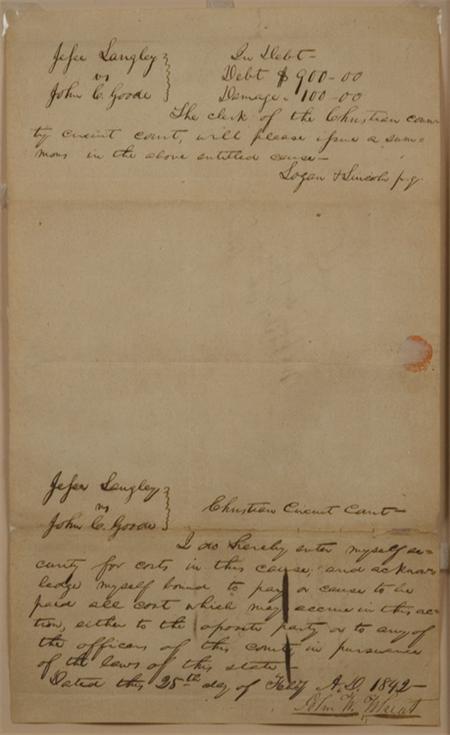 Jesse Langley
vs
John C. Goode
In Debt—
Debt $900-00
Damage " 100-00
The clerk of the Christian coun-
ty circuit court, will please issue a sum-
mons in the above entitled cause—
Logan & Lincoln p.q.
Jesse Langley
vs
John C. Goode
Christian Circuit Court—
I do hereby enter myself se-
curity for costs in this cause, and acknow-
ledge myself bound to pay or cause to be
paid all cost which may accrue in this ac-
tion, either to the oposite party or to any of
the officers of this court in pursuance
of the laws of this state—
Dated this 25th day of Feby A.D. 1842—
John W. Wheat